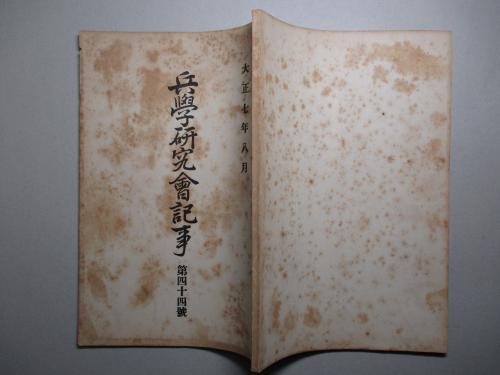 兵學研究會記事
第四十四號
大正七年八月